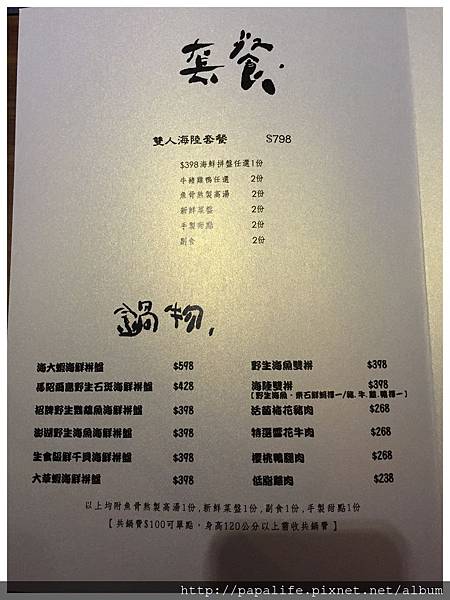 套餐
雙人海陸套餐 $798
$398海鮮拼盤任選1份
牛豬雞鴨任選 2份
魚骨熬製高湯 2份
新鮮菜盤 2份
手製甜點 2份
副食 2份
鍋物
海大蝦海鮮拼盤 $598
野生石斑海鮮拼盤 $428
招牌野生鸚鵡魚海鮮拼盤 $398
澎湖野生海魚海鮮拼盤 $398
生食級鮮干貝海鮮拼盤 $398
大草蝦海鮮拼盤 $398
野生海魚雙拼 $398
海陸雙拼 $398
活菌梅花豬肉 $268
特選雪花牛肉 $268
櫻桃鴨腿肉 $268
低脂雞肉 $238
以上均附魚骨熬製高湯1份,新鮮菜盤1份,副食1份,手製甜點1份
【共鍋費$100可單點，身高120公分以上需收共鍋費】
http://papalife.pixnet.net/album